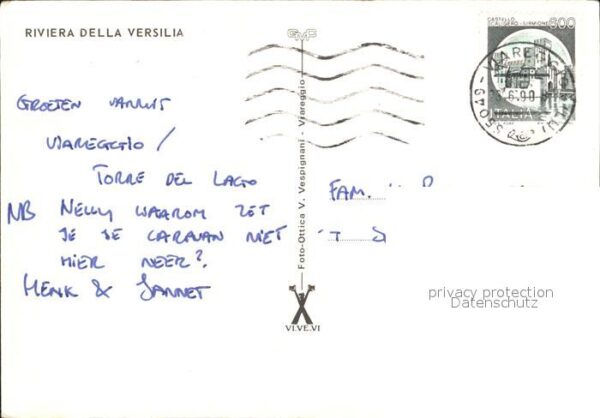 RIVIERA DELLA VERSILIA
GROETEN VANUIT
VIAREGGIO /
TORRE DEL LAGO
NB NELLY WAAROM ZET
JE JE CARAVAN NIET
HIER NEER?.
HENK & JANNET
GMB
Foto-Ottica V. Vespignani - Viareggio
VI.VE.VI
CASTELLO
SCALIGERO - SIRMIONE
600
ITALIA
55049 - VIAREGGIO
6.90
FAM.
privacy protection
Datenschutz